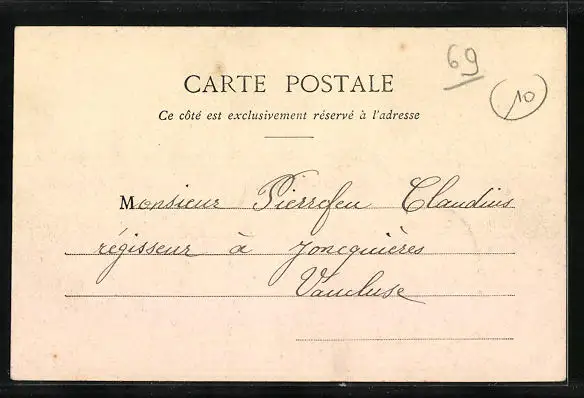 69
10
CARTE POSTALE
Ce côté est exclusivement réservé à l'adresse
Monsieur Pierrefeu Claudius
régisseur à Joncquières
Vaucluse